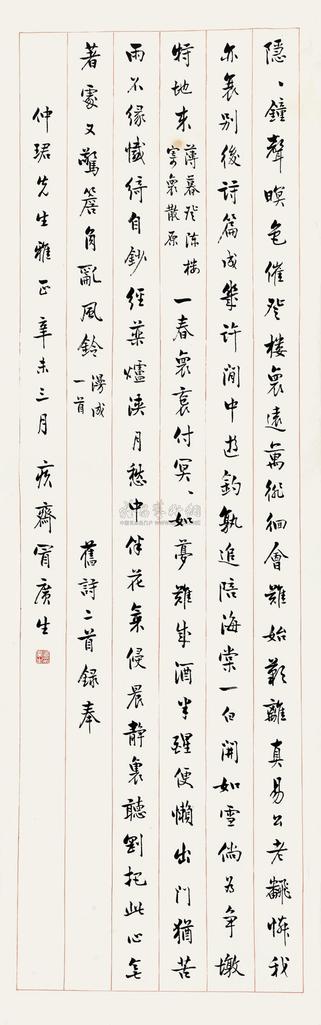 隱、鐘聲暝色催登樓裏遠萬徘徊會難始歎離真易公老翻憐我
亦衰別後詩篇成幾許閒中遊釣孰追陪海棠一白開如雪倘為爭墩
特地來 薄暮登陳樓寄裏散原 一春裏哀付冥、如夢難成酒半醒便懶出門猶苦
雨不緣懺綺自鈔經藥爐淡月愁中伴花氣侵晨靜裏聽劉把此心無
著處又驚簷角亂風鈴 漫成一首 舊詩二首錄奉
仲珺先生雅正辛未三月疚齋冒廣生